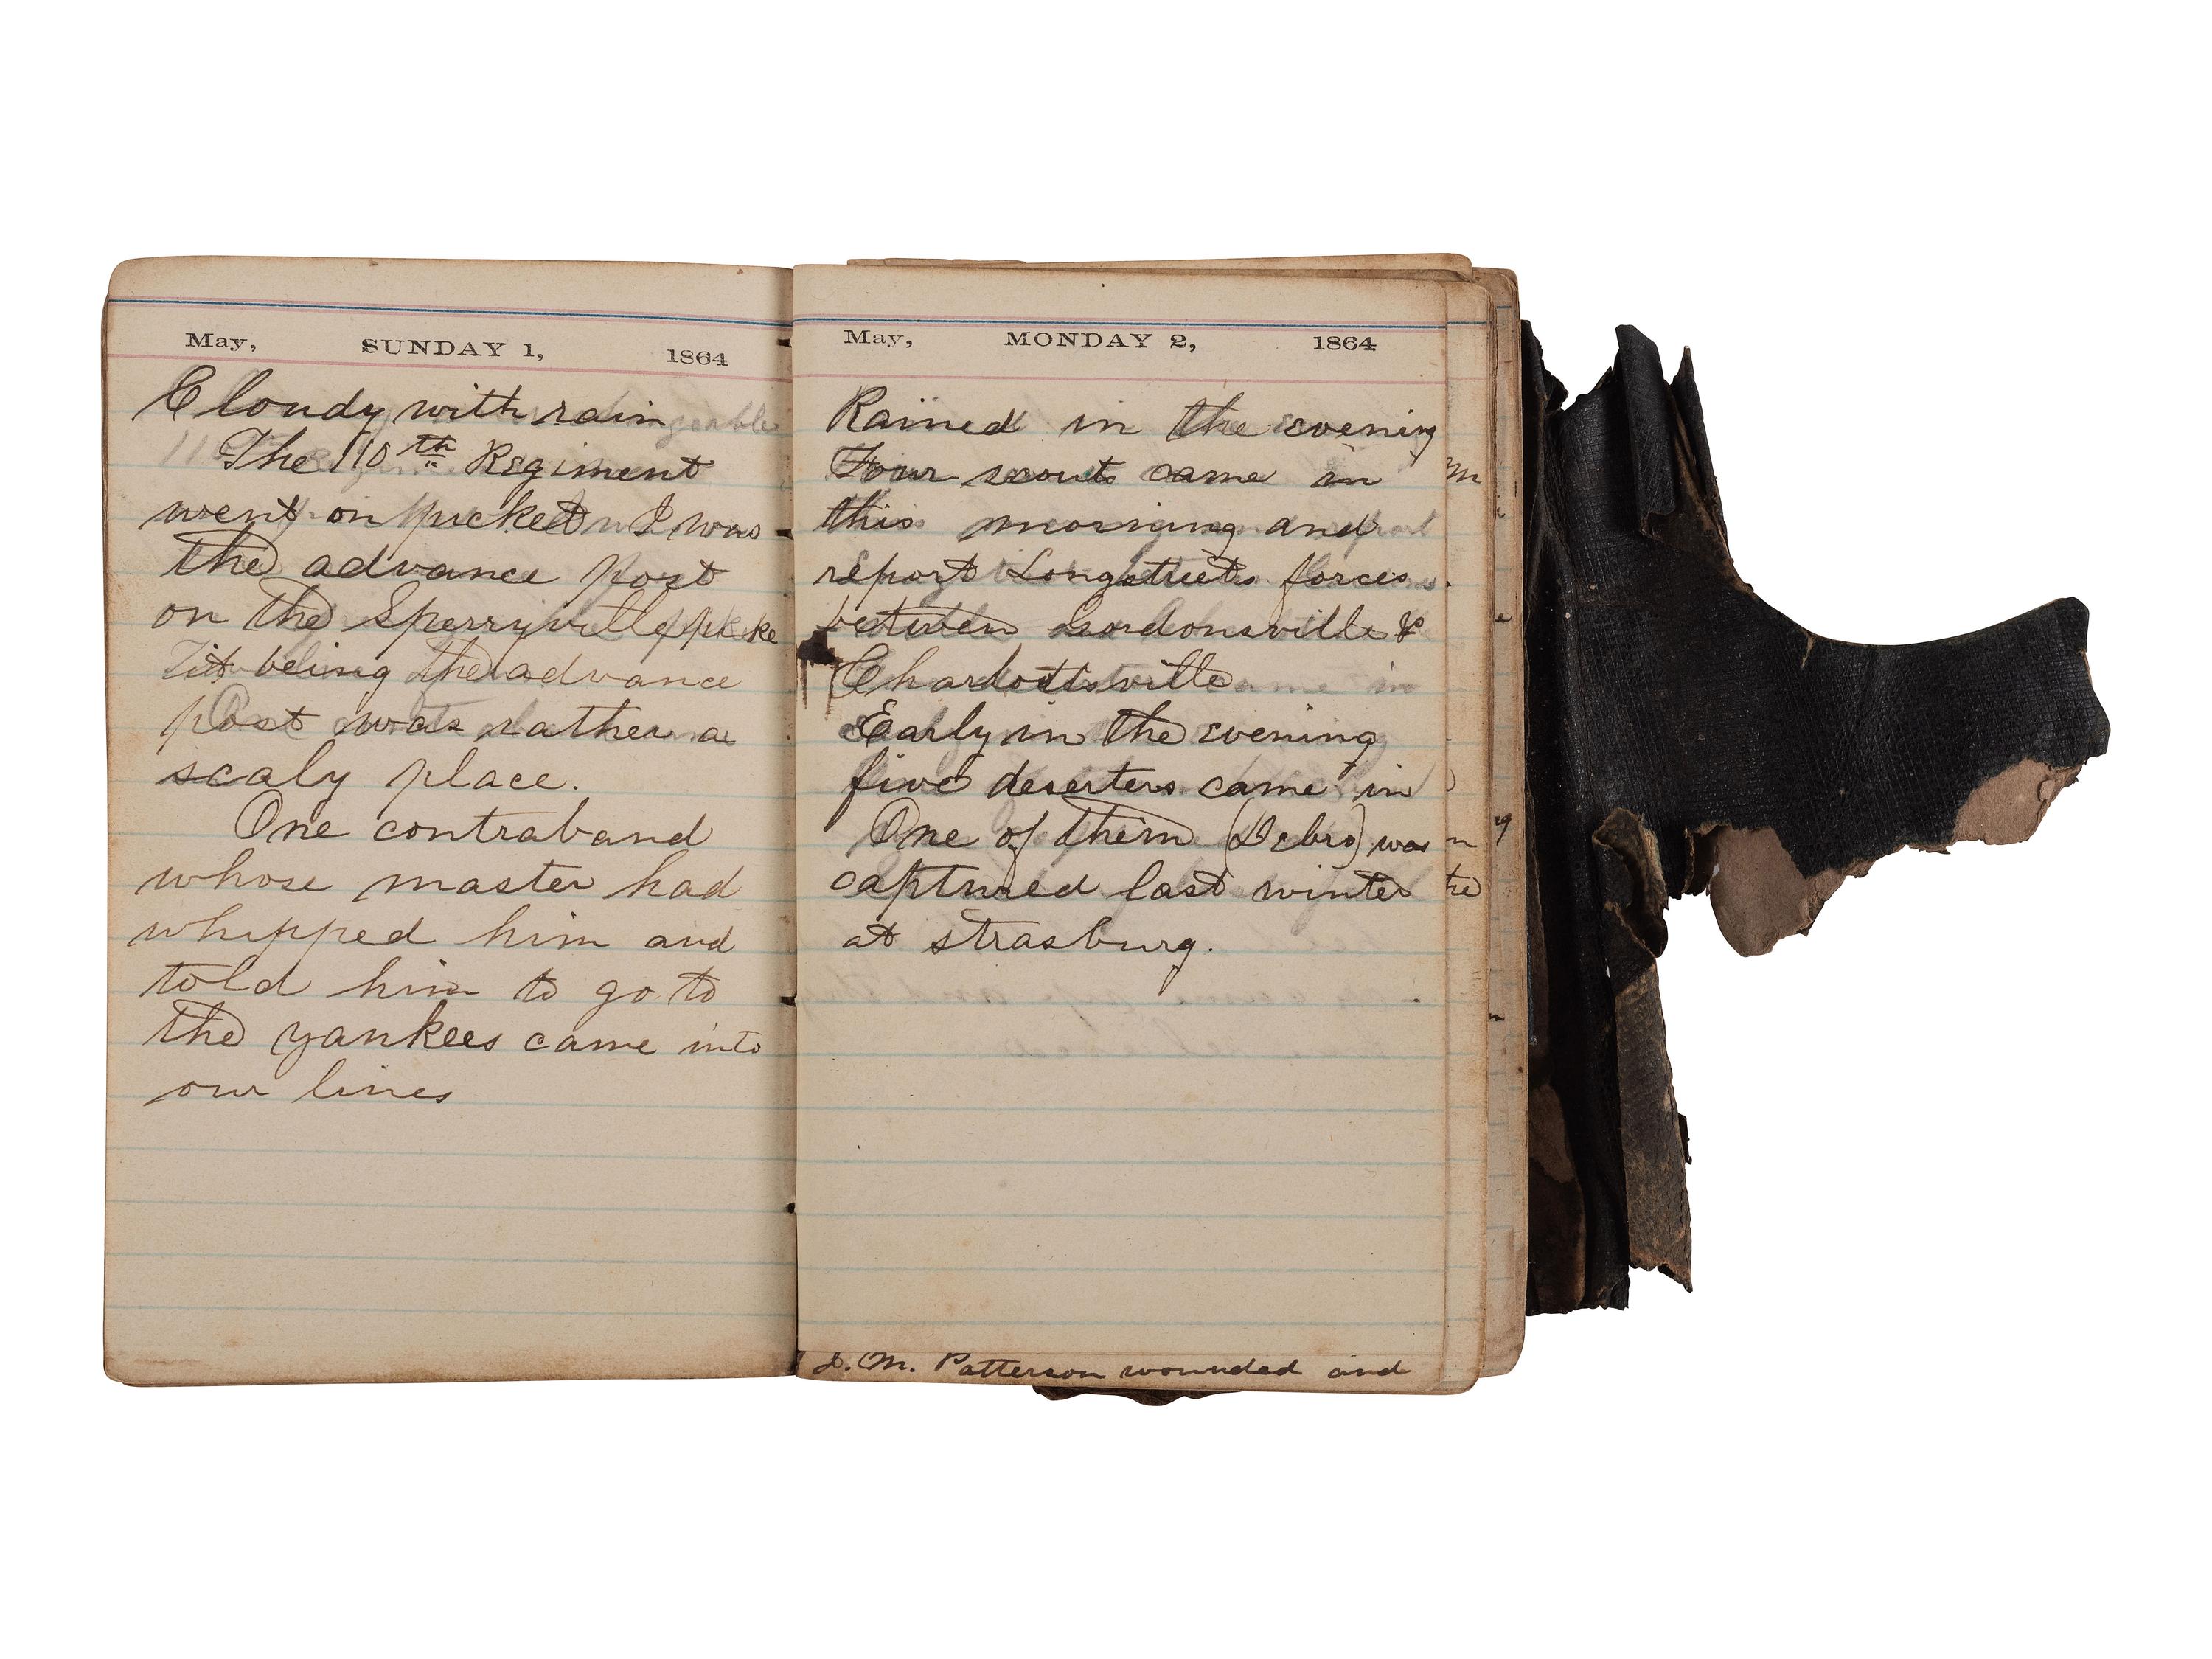 May, SUNDAY 1, 1864
Cloudy with rain
The 110th Regiment
went on picket I was
the advance post
on the Sperryville pike
it being the advance
post was rather a
scaly place.
One contraband
whose master had
whipped him and
told him to go to
the yankees came into
our lines
May, MONDAY 2, 1864
Rained in the evening
Four scouts came in
this morning and
report Longstreets forces
between Gordonsville &
Charlottsville
Early in the evening
five deserters came in
One of them (Debro) was
captured last winter
at strasburg.
D. M. Patterson wounded and